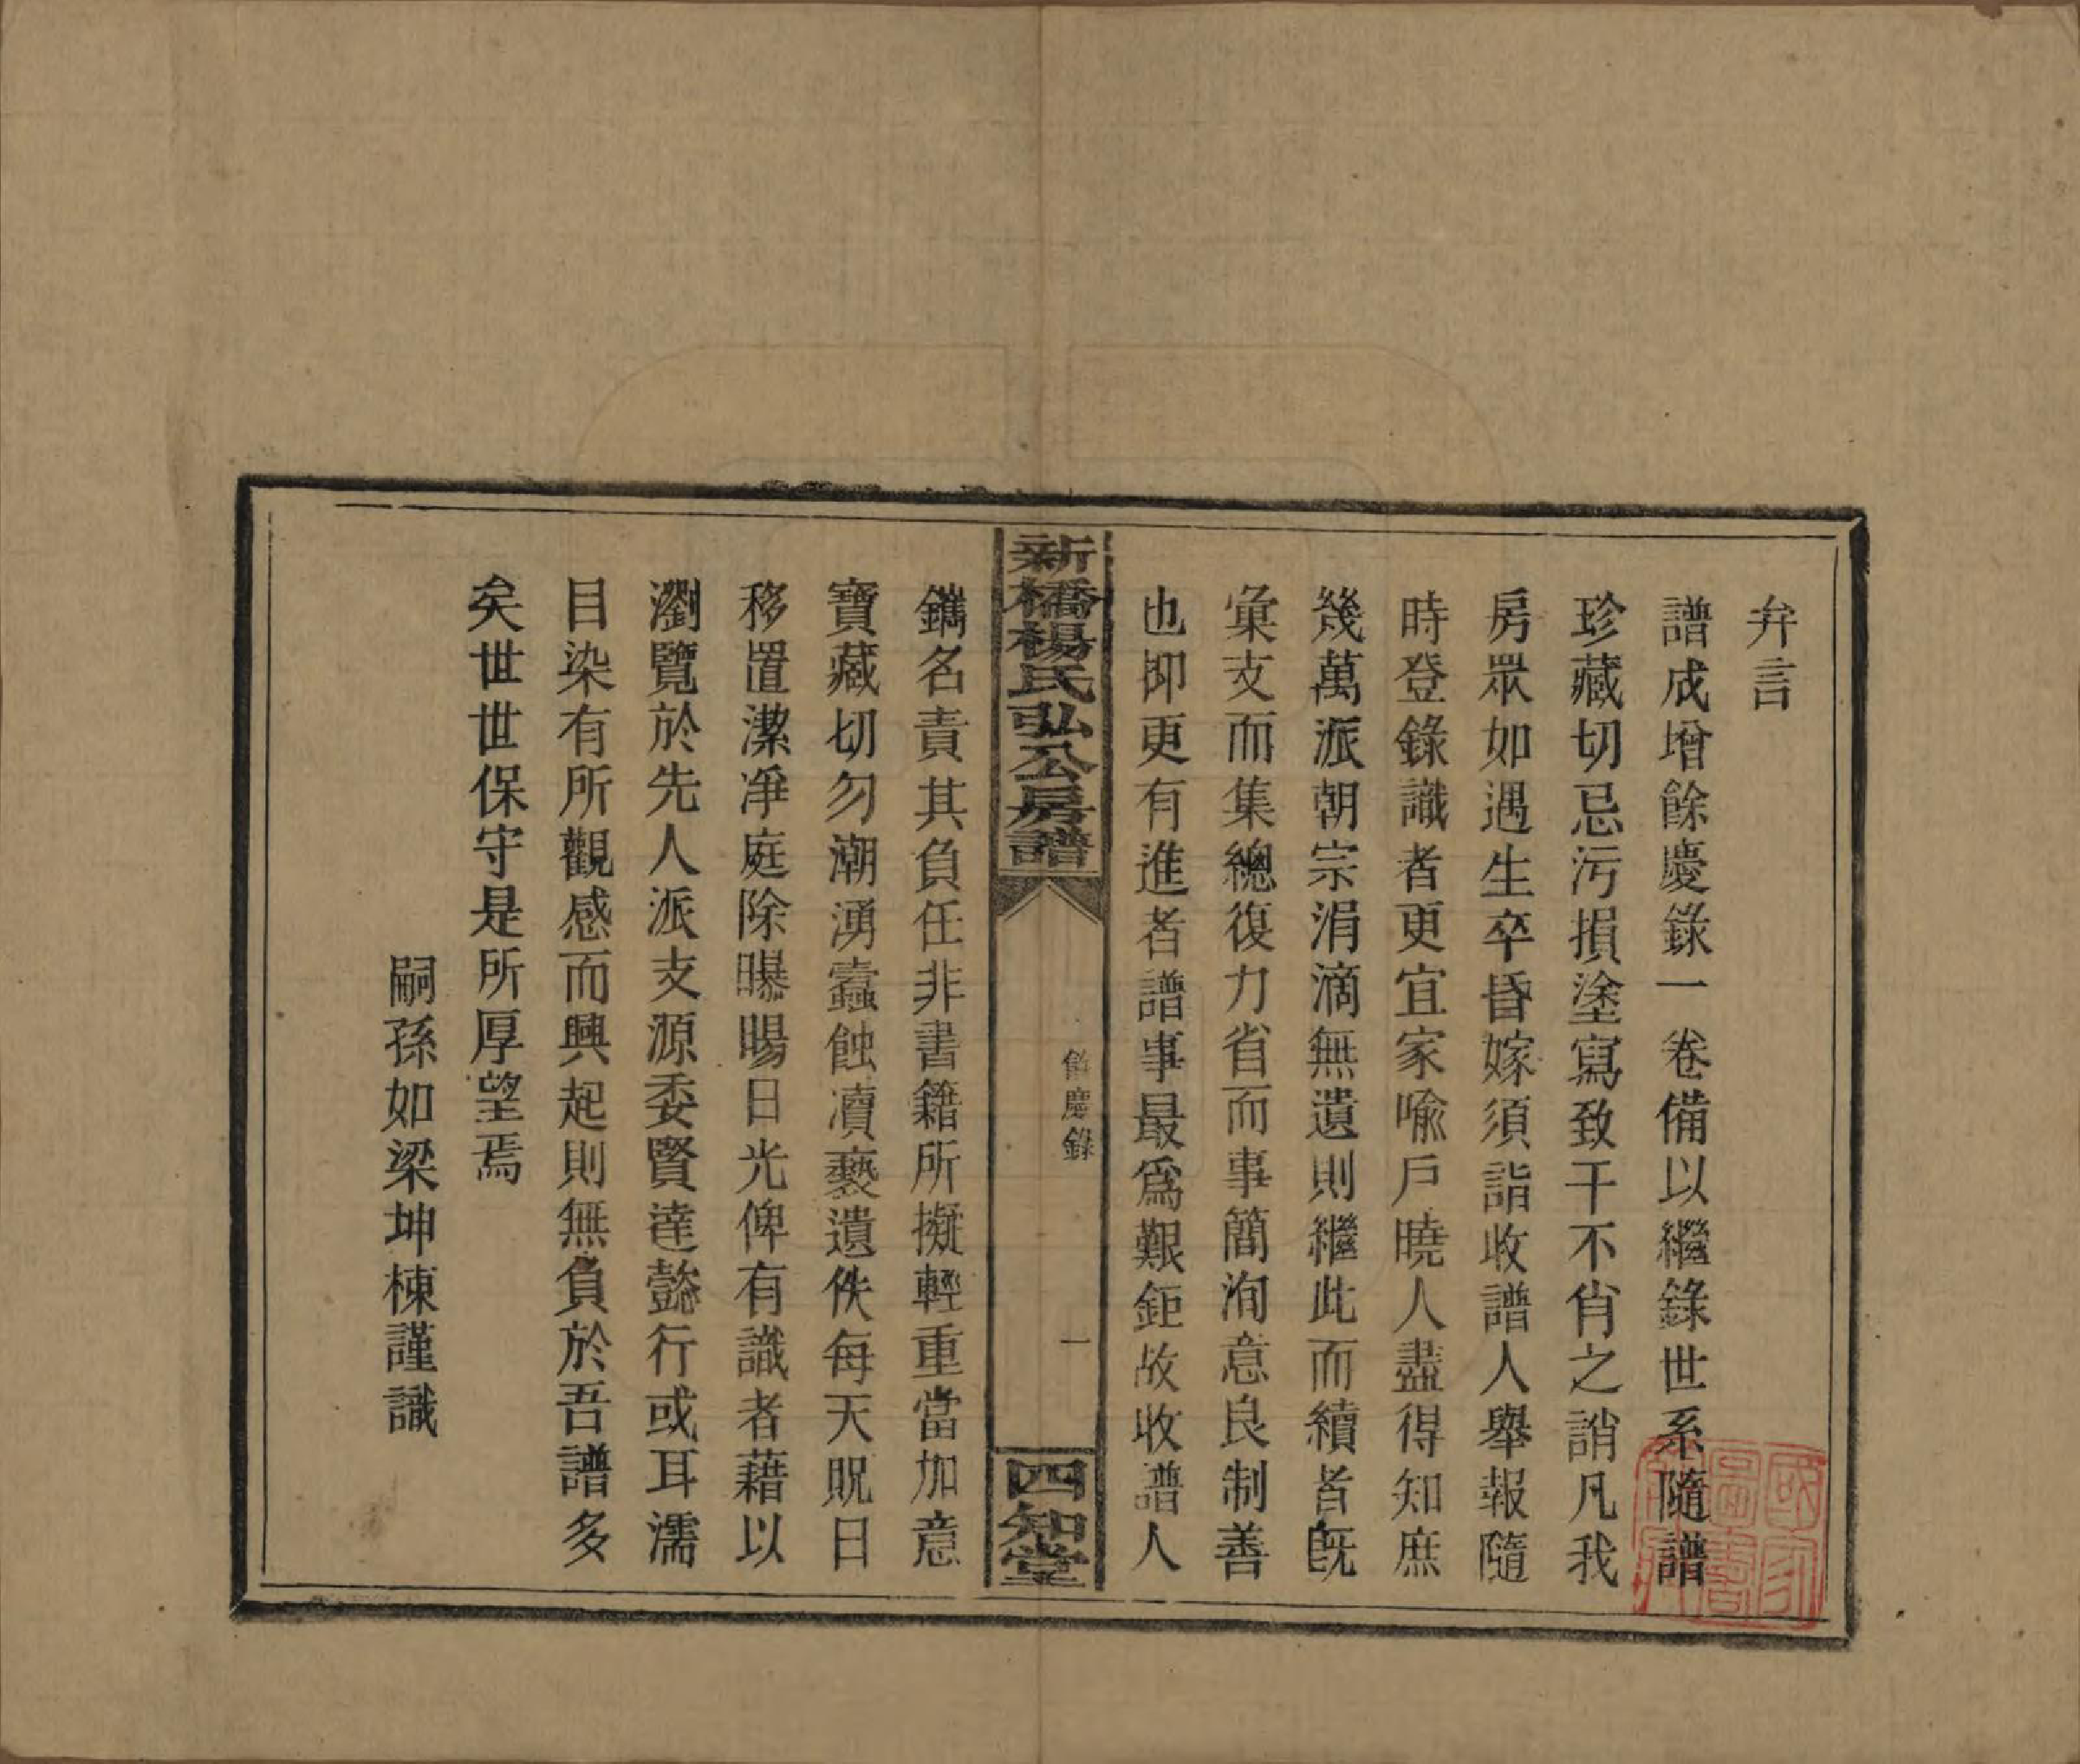 弁言
譜成增餘慶錄一卷備以繼錄世系隨譜
珍藏切忌污損塗寫致干不肖之誚凡我
房眾如遇生卒昏嫁須詣收譜人舉報隨
時登錄識者更宜家喩戶曉人盡得知庶
幾萬派朝宗涓滴無遺則繼此而續者既
彙支而集總復力省而事簡洵意良制善
也抑更有進者譜事最爲艱鉅故收譜人
新橋楊氏弘公房譜
餘慶錄
一
四知堂
鐫名責其負任非書籍所擬輕重當加意
寶藏切勿潮湧蠹蝕瀆褻遺佚每天貺日
移置潔凈庭除曝暘日光俾有識者藉以
瀏覽於先人派支源委賢達懿行或耳濡
目染有所觀感而興起則無負於吾譜多
矣世世保守是所厚望焉
嗣孫如梁坤棟謹識
國家圖書館藏